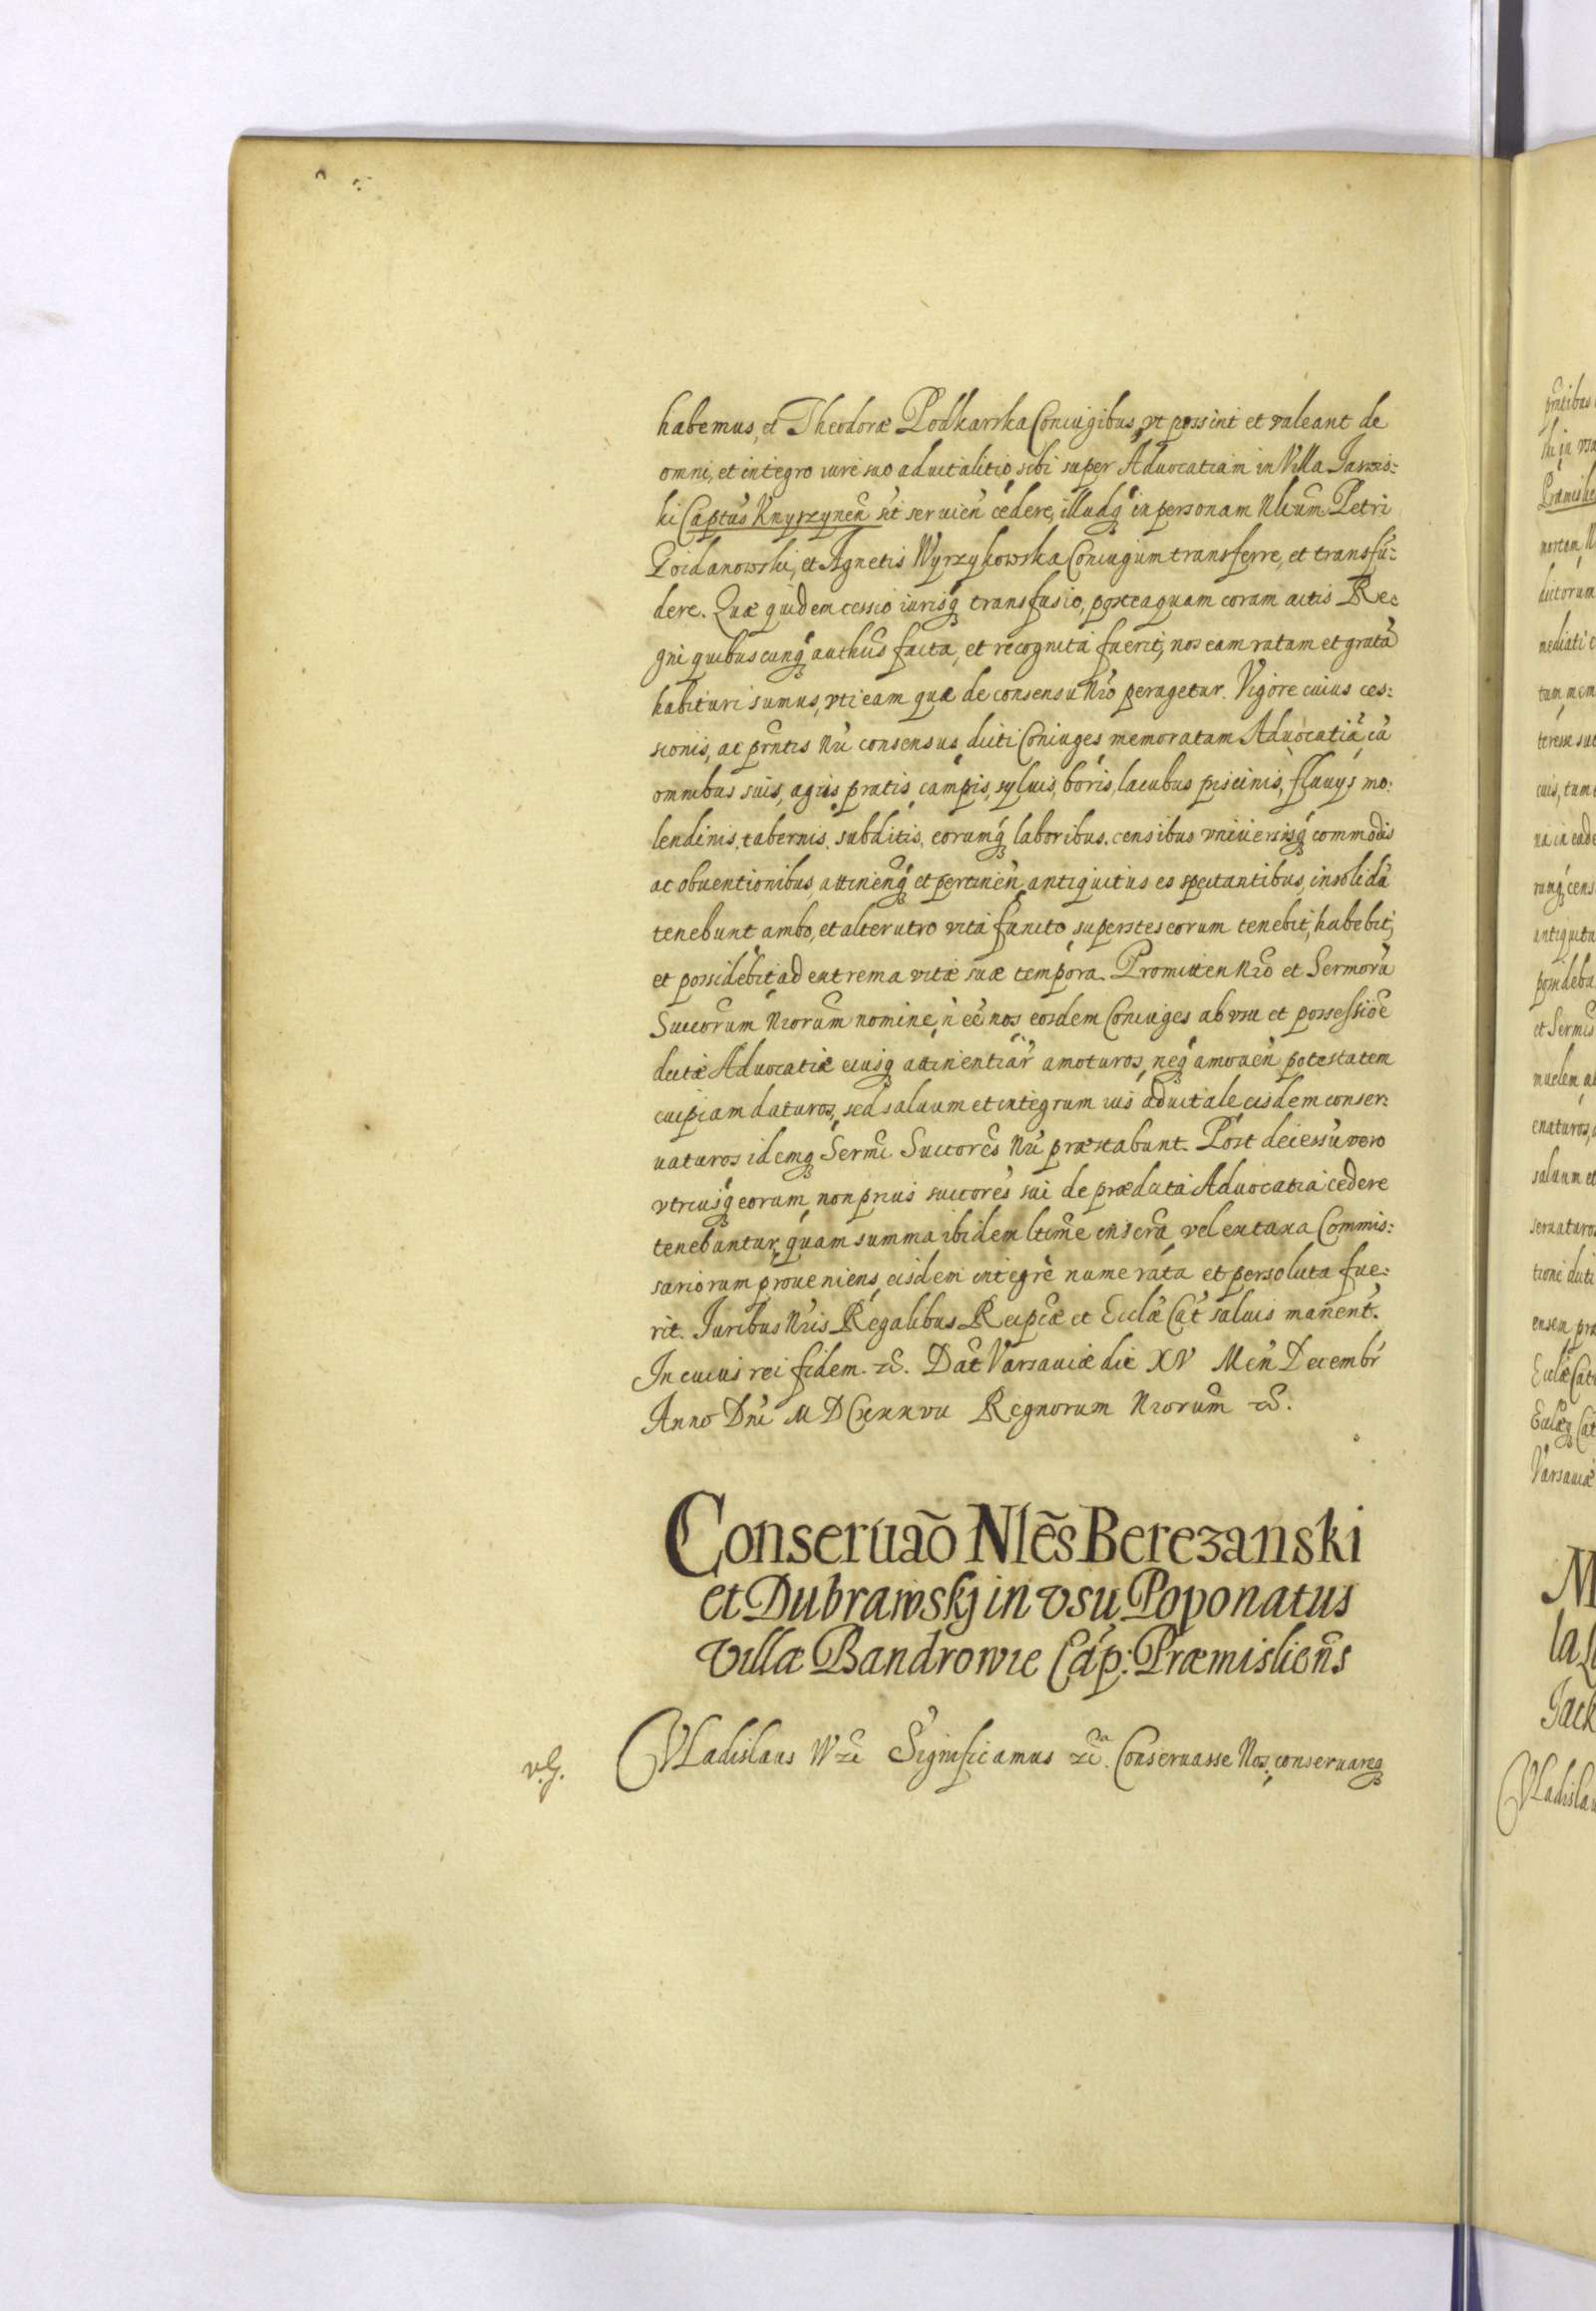 habemus, et Theodoræ Podkarska Coniugibus, vt possint et valeant de
omni, et integro iure suo aduitalitio sibi super Aduocatiam in Villa Jaswis:
ki Captus Knyszyneñ sit seruieñ cedere, illudq̃ in personam Nlium Petri
et Agnetis Wyrzykowska Coniugum transferre, et transfũ:
dere. Quæ quidem cessio iurisq̃ transfusio, posteaquam coram actis Re:
gni quibuscunq̃ authcis facta, et recognita fuerit, nos eam ratam et gratã
habituri sumus, vti eam quæ de consensu Nro peragetur. Vigore cuius ces:
sionis, ac pñtis Nri consensus, dicti Coniuges memoratam Aduocatiã cũ
omnibus suis, agris pratis, campis, syluis, boris, lacubus piscinis, fluuys mo:
lendinis, tabernis, subditis, eorumq̃ laboribus, censibus vniuersisq̃ commodis
ac obuentionibus, attineñq̃ et pertineñ antiquitus eo spectantibus, insolidũ
tenebunt ambo, et alterutro vita functo, superstes eorum tenebit, habebit,
et possidebit ad extrema vitæ suæ tempora. Promitteñ Nro et Sermorũ
Succorum Nrorum nomine, ñ eẽ nos eosdem Coniuges ab vsu et possessioẽ
dictæ Aduocatiæ eiusq̃ attinentiar amoturos, neq̃ amoueñ potestatem
cuipiam daturos, sed saluum et integrum ius aduitale eisdem conser:
uaturos idemq̃ Sermi Succores Nri præstabunt. Post decessũ vero
vtriusq̃ eorum, non prius succores sui de prædicta Aduocatia cedere
tenebuntur, quam summa ibidem ltime inscra vel ex taxa Commis:
sariorum proueniens, eisdem integrè numerata et persoluta fue:
rit. Juribus Nris Regalibus Reipcæ et Ecclæ Cat saluis maneñt.
In cuius rei fidem. &c. Dat Varsauiæ die XV Meñ Decembr
Anno Dñi MDCxxxvii Regnorum Nrorum &c.
Conseruaõ Nlẽs Berezanski
et Dubrawskj in vsu Poponatus
Villæ Bandrowie Cap: Præmislieñs
Vladislaus W &c Significamus &c. Conseruasse Nos, conseruareq̃